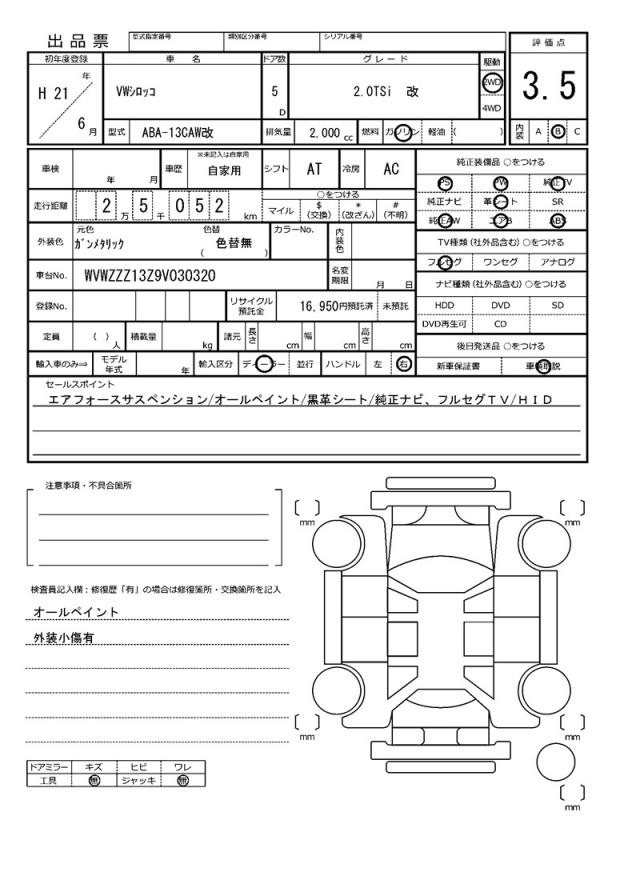 出品票 型式指定番号 類別区分番号 シリアル番号
評価点
3.5
初年度登録 車名 ドア数 グレード 駆動
H 21 年 6 月 VWｼﾛｯｺ 5 D 2.0TSi 改 2WD
4WD
型式 ABA-13CAW改 排気量 2,000 cc 燃料 ガソリン 軽油 ( ) 内装 A B C
車検 年 月 車歴 ※未記入は自家用 自家用 シフト AT 冷房 AC
純正装備品 ○をつける
PS PW 純正TV
純正ナビ 革シート SR
純正AW エアB ABS
走行距離 2 万 5 千 0 5 2 km ○をつける
マイル $ (交換) * (改ざん) # (不明)
外装色 元色 ｶﾞﾝﾒﾀﾘｯｸ 色替 色替無 ( ) カラーNo. 内装色
TV種類（社外品含む）○をつける
フルセグ ワンセグ アナログ
車台No. WVWZZZ13Z9V030320 名変期限 月 日
ナビ種類（社外品含む）○をつける
HDD DVD SD
DVD再生可 CD
登録No. リサイクル預託金 16,950円預託済 未預託
定員 ( ) 人 積載量 kg 諸元 長さ cm 幅 cm 高さ cm
後日発送品 ○をつける
新車保証書 車輌取説
輸入車のみ⇒ モデル年式 年 輸入区分 ディーラー 並行 ハンドル 左 右
セールスポイント
エアフォースサスペンション/オールペイント/黒革シート/純正ナビ、フルセグＴＶ/ＨＩＤ
注意事項・不具合箇所
mm mm
検査員記入欄：修復歴「有」の場合は修復箇所・交換箇所を記入
オールペイント
外装小傷有
mm mm
ドアミラー キズ ヒビ ワレ
工具 無 ジャッキ 無
mm